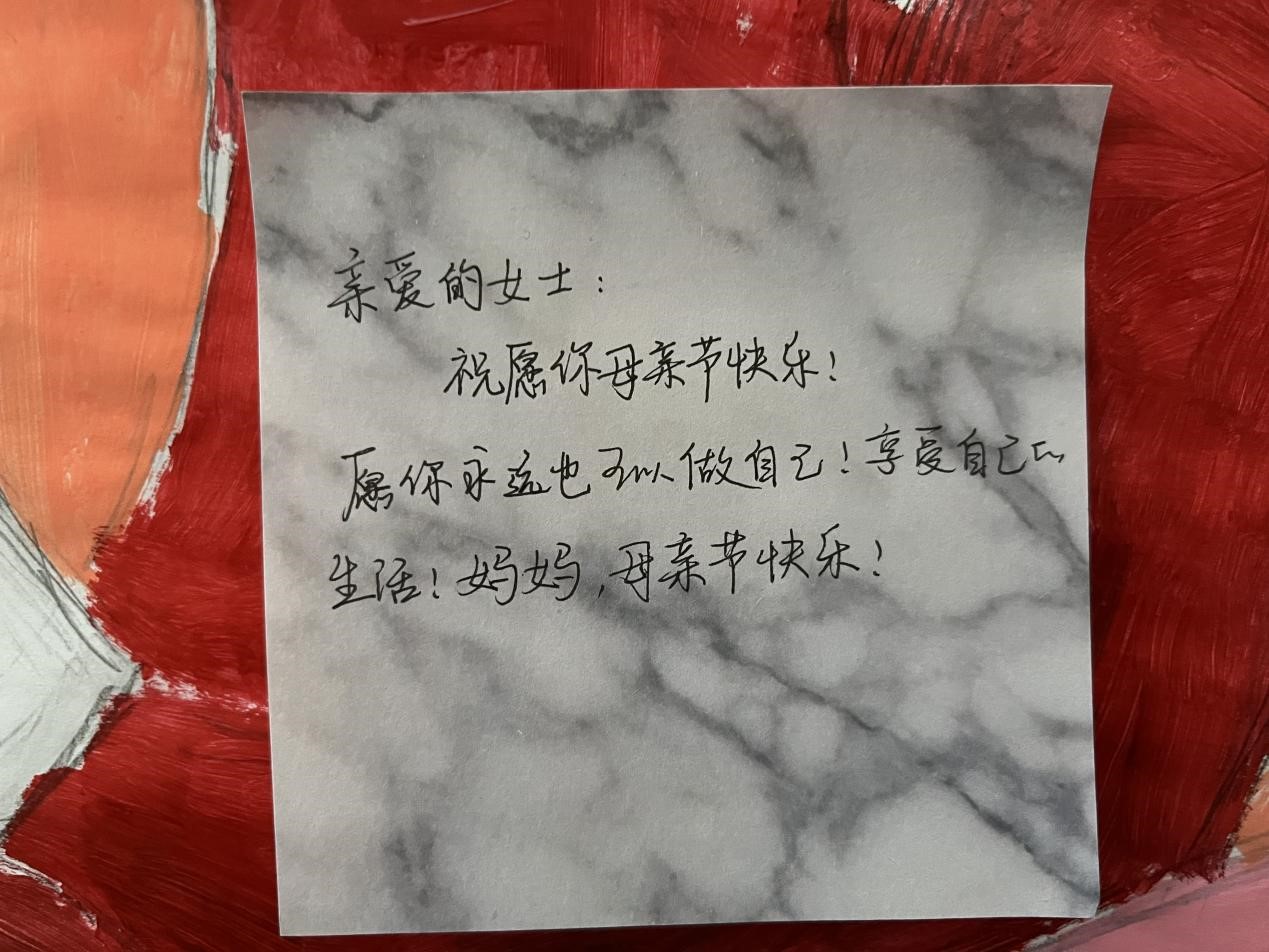 亲爱的女士：
祝愿你母亲节快乐！
愿你永远也可以做自己！享受自己的
生活！妈妈，母亲节快乐！